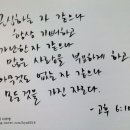 근심하는 자 같으나
항상 기뻐하고
가난한 자 같으나
많은 사람을 부요하게 하고
아무것도 없는 자 같으나
모든 것을 가진 자로다.
-고후 6:10